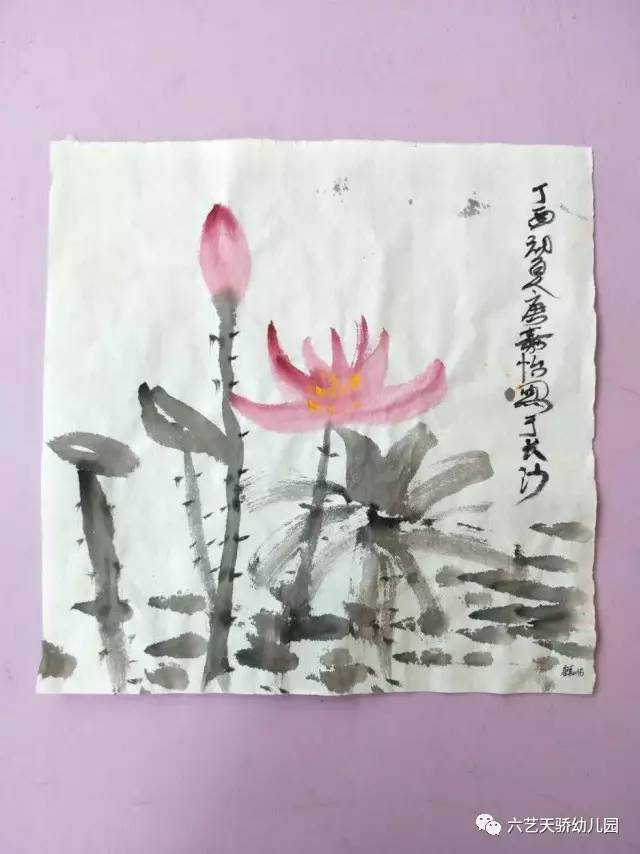 丁酉初夏唐嘉怡画于长沙
六艺天骄幼儿园